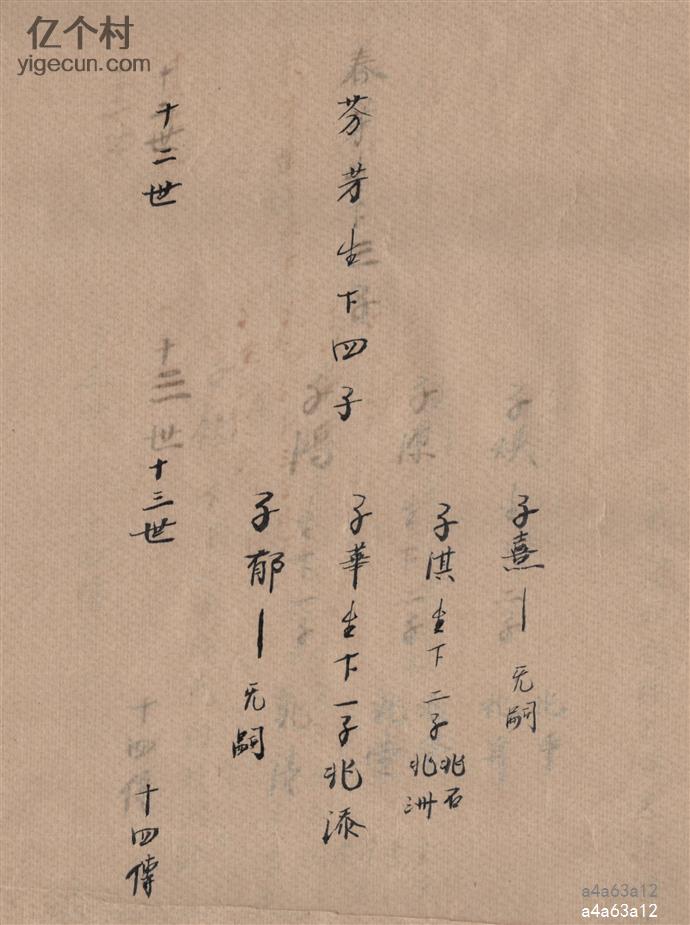 亿个村
yigecun.com
芬芳生下四子
子熹｜无嗣
子淇生下二子兆石
兆洲
子華生下一子兆添
子郁｜无嗣
十二世
十三世
十四傳
a4a63a12
a4a63a12